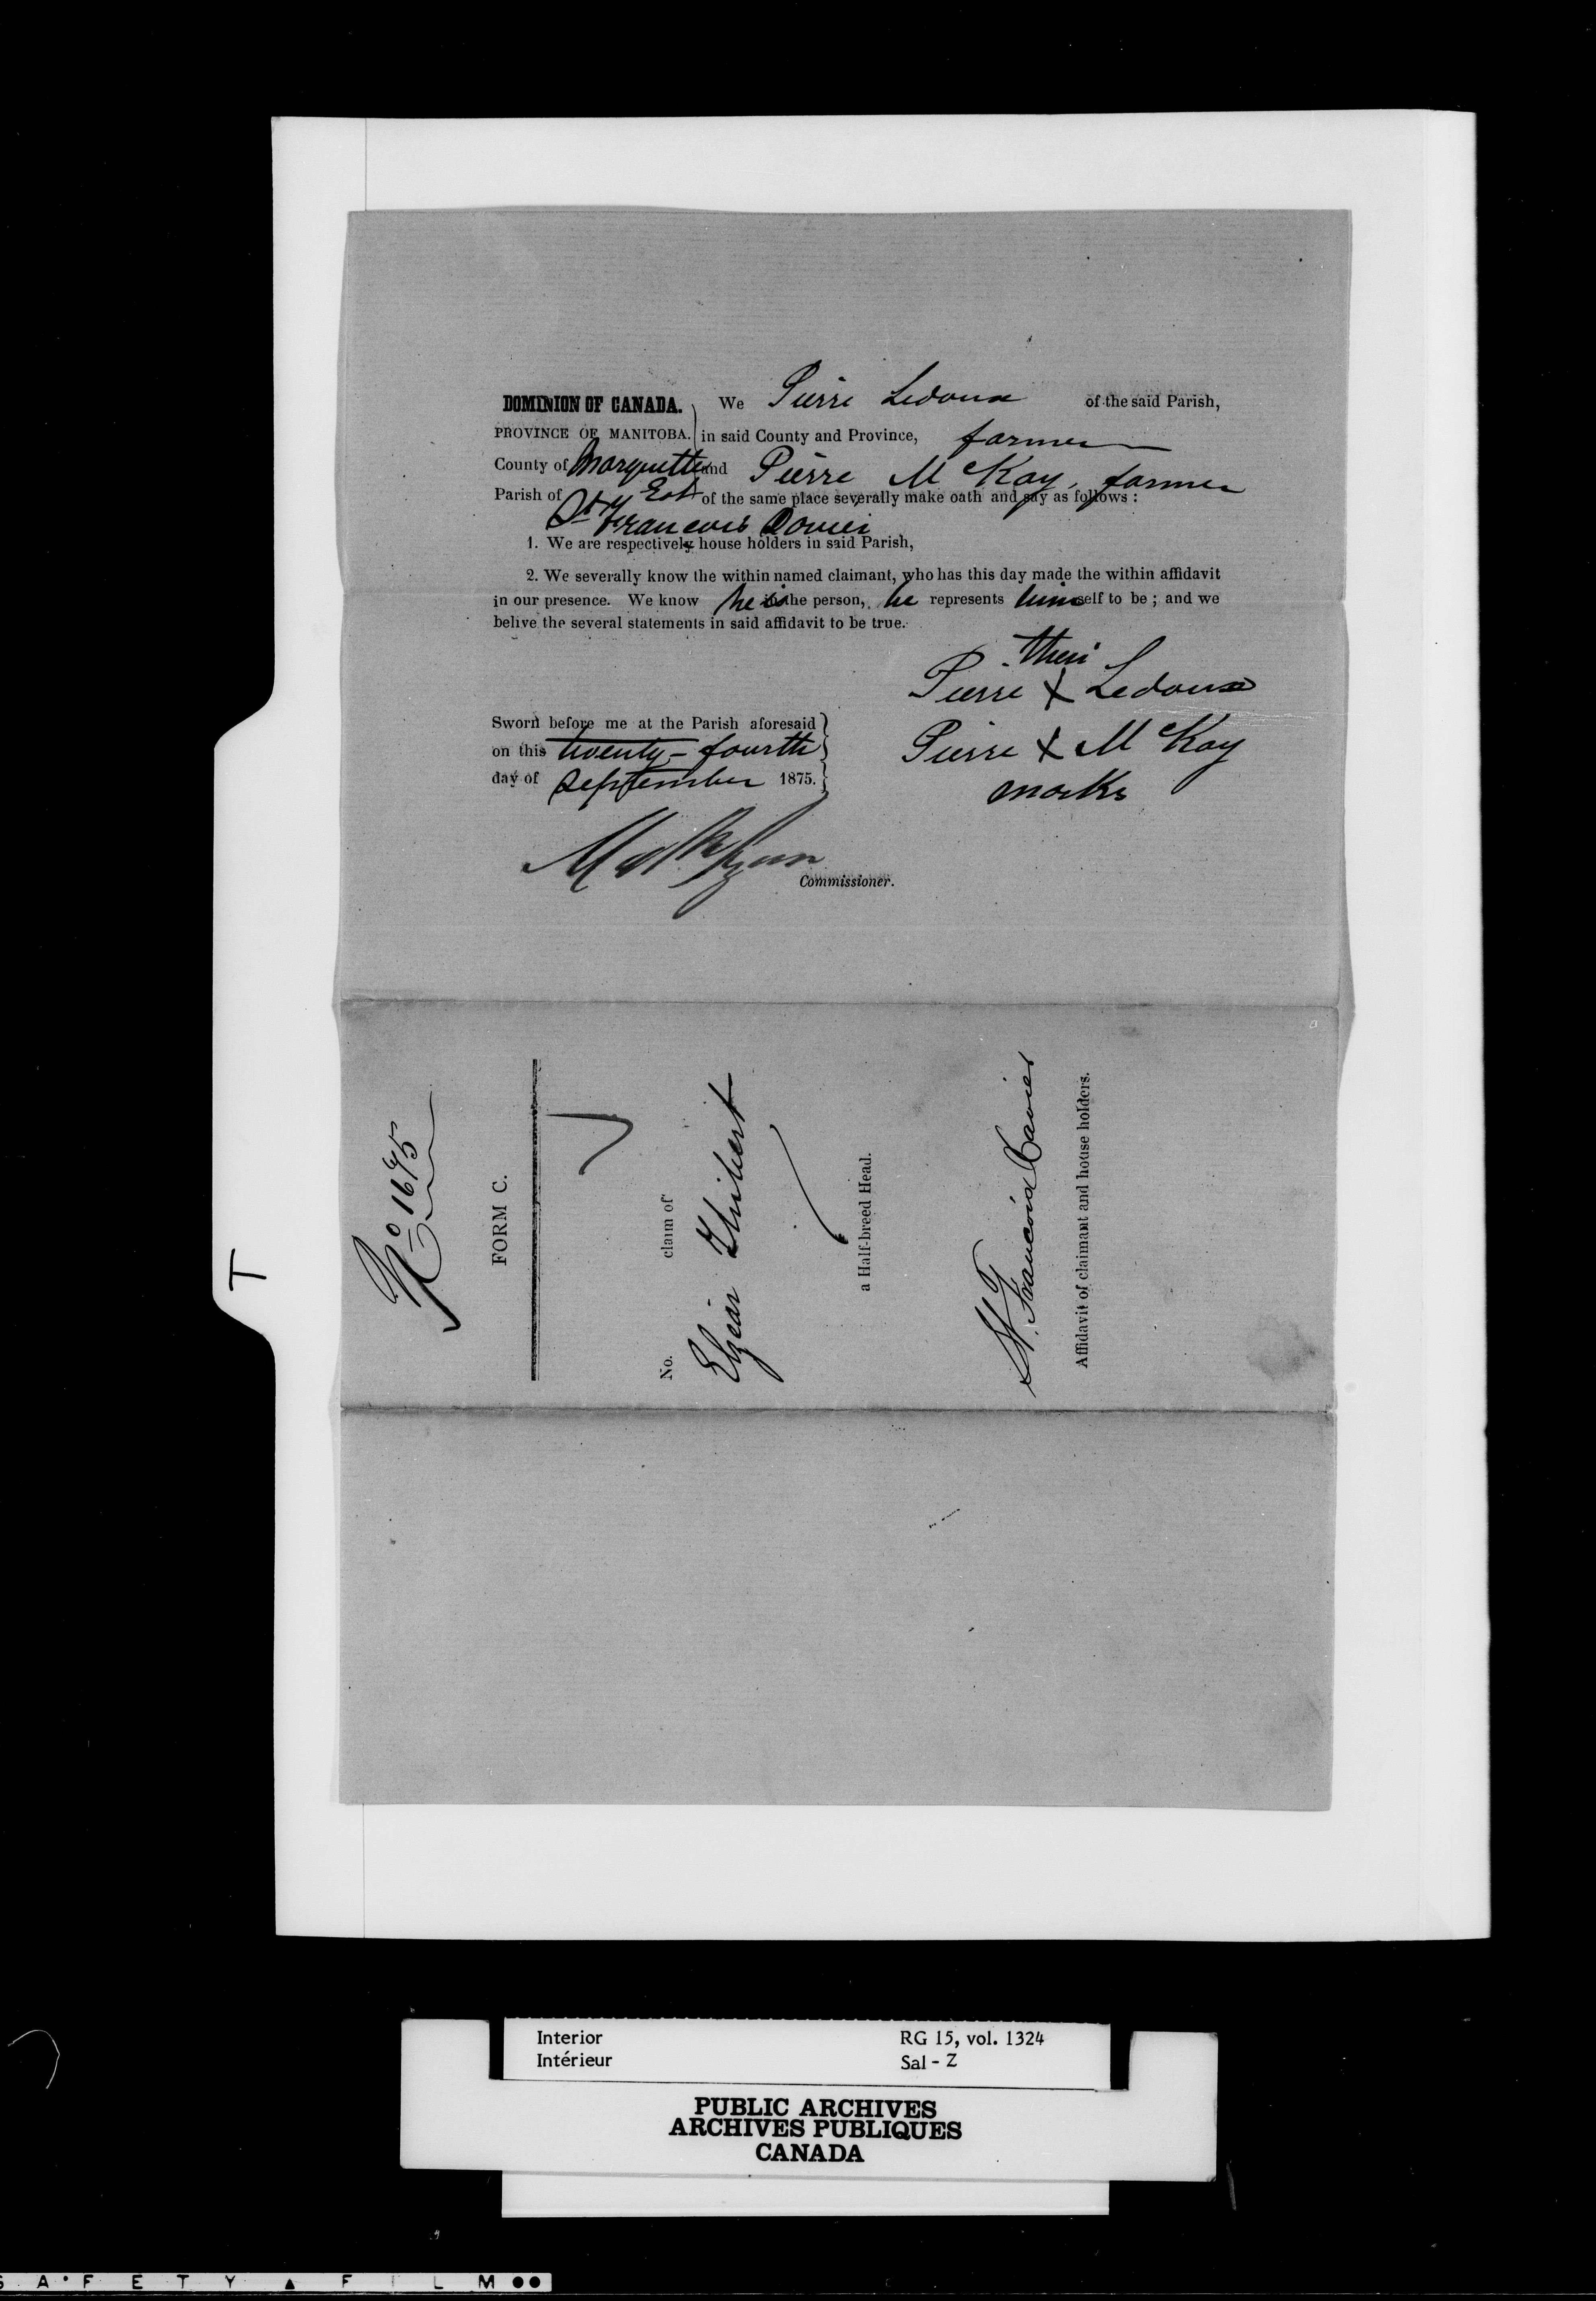 DOMINION OF CANADA. We Pierre Ledoux of the said Parish,
PROVINCE OF MANITOBA. in said County and Province, farmer
County of Marquette and Pierre McKay, farmer
Parish of East of the same place severally make oath and say as follows :
St. Francois Xavier
1. We are respectively house holders in said Parish,
2. We severally know the within named claimant, who has this day made the within affidavit
in our presence. We know he is the person, he represents himself to be ; and we
belive the several statements in said affidavit to be true.
their
Pierre X Ledoux
Sworn before me at the Parish aforesaid
Pierre X McKay
on this twenty-fourth
marks
day of September 1875.
Commissioner.
No 1695
FORM C.
No. claim of
Elzéar Thibert
a Half-breed Head.
St. Francois Xavier
Affidavit of claimant and house holders.
T
Interior RG 15, vol. 1324
Intérieur Sal - Z
PUBLIC ARCHIVES
ARCHIVES PUBLIQUES
CANADA
S A F E T Y ▲ F I L M ●●